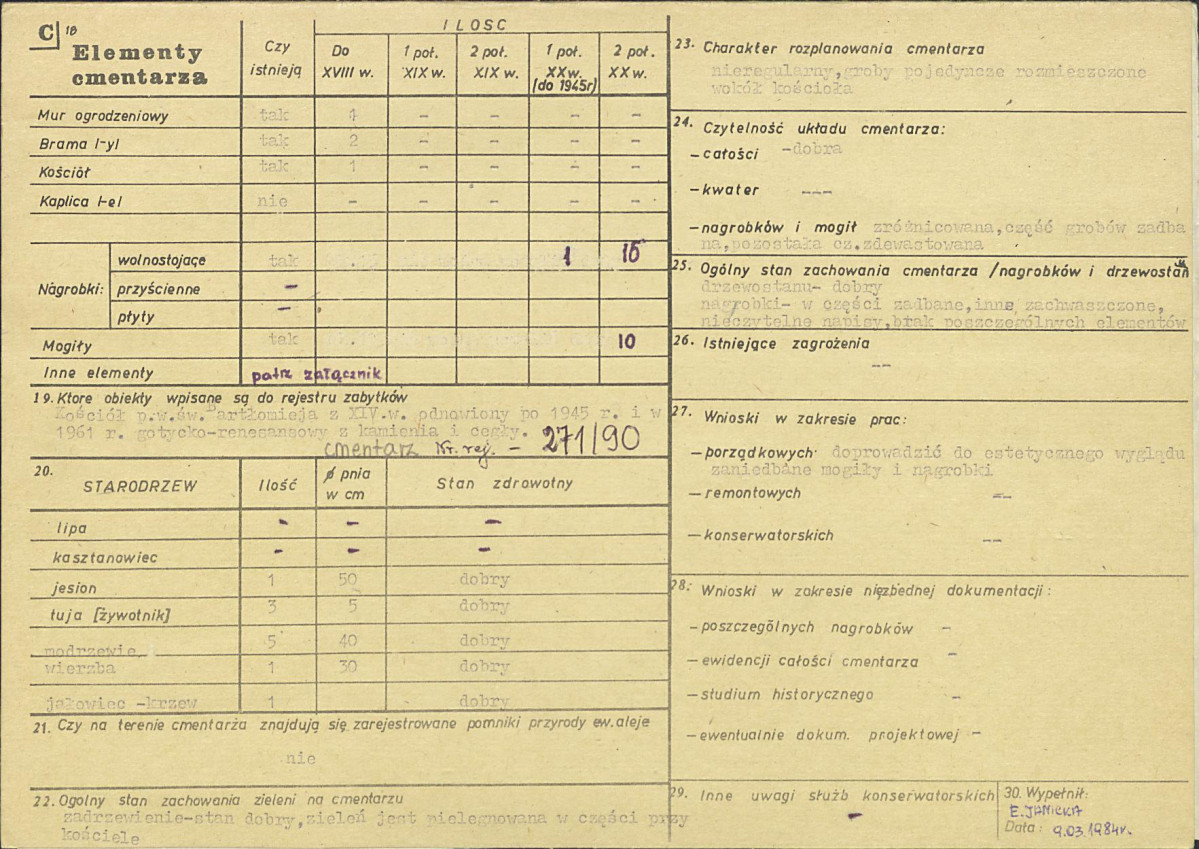 C 18
Elementy
cmentarza
Czy
istnieją
ILOSC
Do
XVIII w.
1 poł.
XIX w.
2 poł.
XIX w.
1 poł.
XX w.
(do 1945r)
2 poł.
XX w.
Mur ogrodzeniowy tak 1 – – – –
Brama /-y/ tak 2 – – – –
Kościół tak 1 – – – –
Kaplica /-e/ nie – – – – –
Nagrobki:
wolnostojące tak 1 15
przyścienne –
płyty –
Mogiły tak 10
Inne elementy patrz załącznik
19. Ktore obiekty wpisane są do rejestru zabytków
Kościół p.w.św.Bartłomieja z XIV.w. odnowiony po 1945 r. i w
1961 r. gotycko-renesansowy z kamienia i cegły.
cmentarz Nr. rej. – 271/90
20.
STARODRZEW
Ilość
ø pnia
w cm
Stan zdrowotny
lipa – – –
kasztanowiec – – –
jesion 1 50 dobry
tuja [żywotnik] 3 5 dobry
modrzewie 5 40 dobry
wierzba 1 30 dobry
jałowiec -krzew 1 dobry
21. Czy na terenie cmentarza znajdują się zarejestrowane pomniki przyrody ew. aleje
nie
22. Ogolny stan zachowania zieleni na cmentarzu
zadrzewienie-stan dobry,zieleń jest pielęgnowana w części przy
kościele
23. Charakter rozplanowania cmentarza
nieregularny,groby pojedyncze rozmieszczone
wokół kościoła
24. Czytelność układu cmentarza:
– całości -dobra
– kwater ---
– nagrobków i mogił zróżnicowana,część grobów zadba
na,pozostała cz.zdewastowana
25. Ogólny stan zachowania cmentarza /nagrobków i drzewostan
drzewostanu- dobry
nagrobki- w części zadbane,inne zachwaszczone,
nieczytelne napisy,brak poszczególnych elementów
26. Istniejące zagrożenia
--
27. Wnioski w zakresie prac:
– porządkowych doprowadzić do estetycznego wyglądu
zaniedbane mogiły i nagrobki
– remontowych --
– konserwatorskich --
28. Wnioski w zakresie niezbędnej dokumentacji:
– poszczególnych nagrobków -
– ewidencji całości cmentarza -
– studium historycznego -
– ewentualnie dokum. projektowej -
29. Inne uwagi służb konserwatorskich
–
30. Wypełnił:
E. JANICKA
Data: 9.03.1984r.